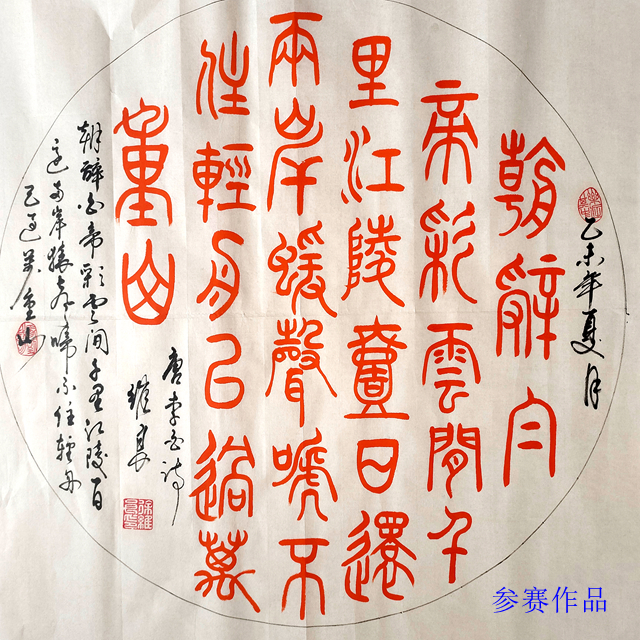 乙未年夏月
朝辭白
帝彩雲間千
里江陵壹日還
兩岸猨聲嗁不
住輕舟已過萬
重山
唐李白诗
维良
朝辞白帝彩雲间千里江陵一日
还两岸猿声啼不住轻舟
已过万重山
参赛作品